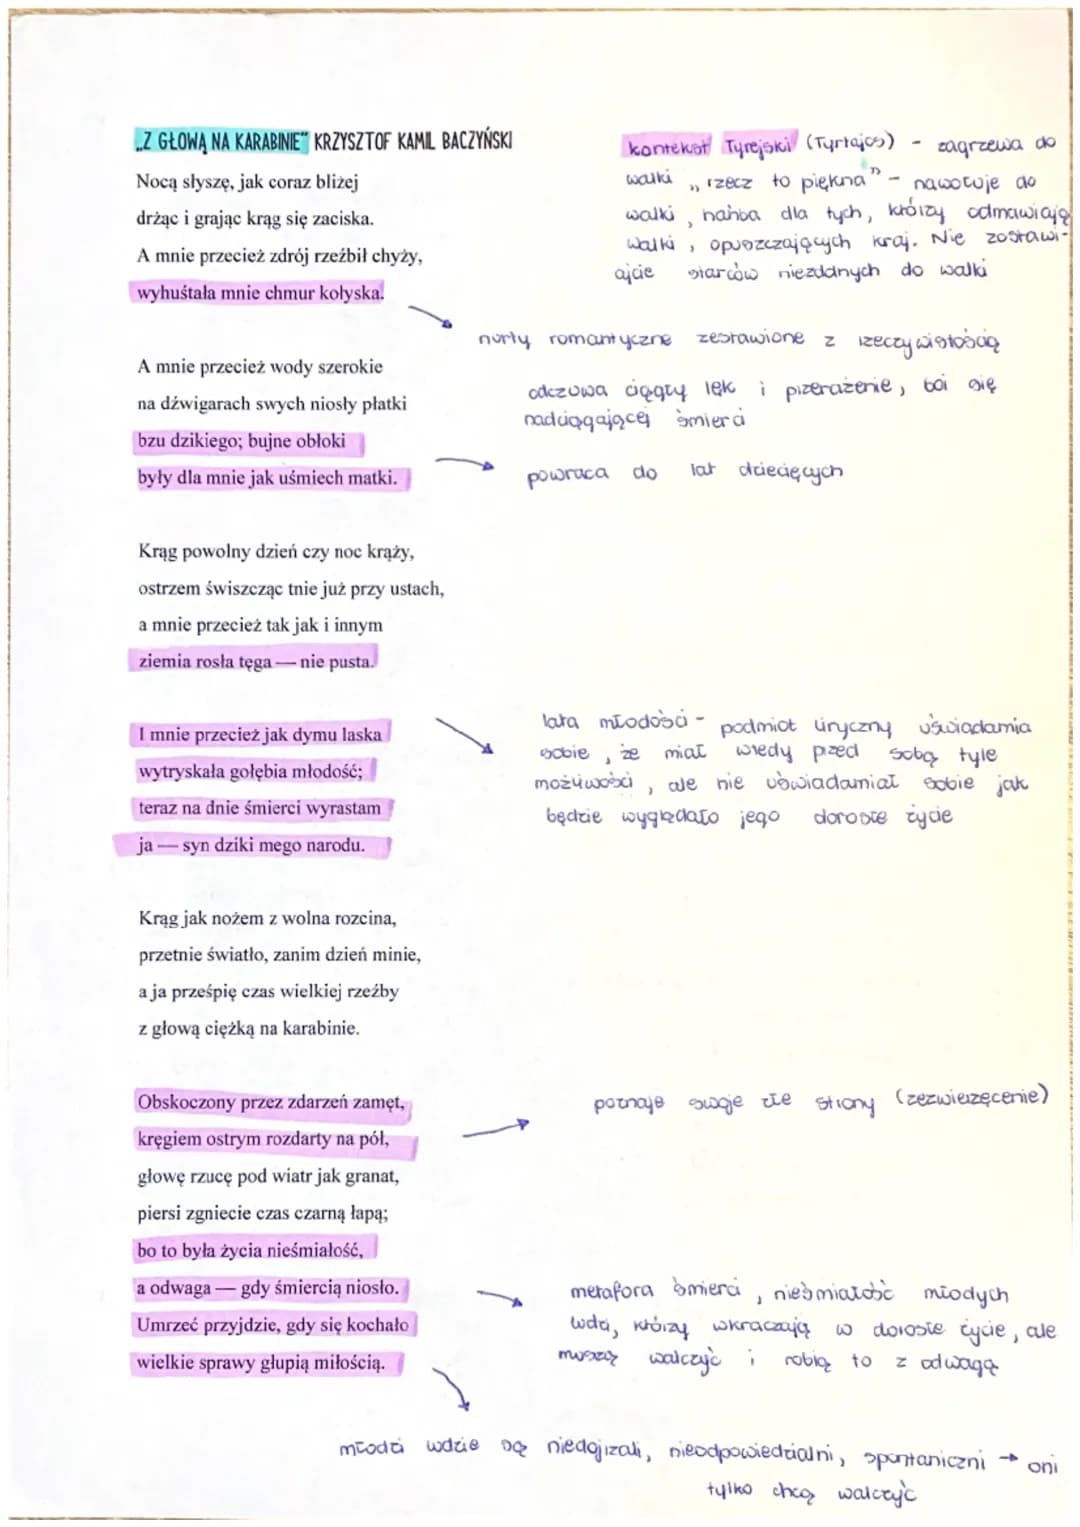 „Z GŁOWĄ NA KARABINIE" KRZYSZTOF KAMIL BACZYŃSKI
Nocą słyszę, jak coraz bliżej
drżąc i grając krąg się zaciska.
A mnie przecież zdrój rzeźbił chyży,
wyhuśtała mnie chmur kołyska.
A mnie przecież wody szerokie
na dźwigarach swych niosły płatki
bzu dzikiego; bujne obłoki
były dla mnie jak uśmiech matki.
Krąg powolny dzień czy noc krąży,
ostrzem świszcząc tnie już przy ustach,
a mnie przecież tak jak i innym
ziemia rosła tęga — nie pusta.
I mnie przecież jak dymu laska
wytryskała gołębia młodość;
teraz na dnie śmierci wyrastam
ja — syn dziki mego narodu.
Krąg jak nożem z wolna rozcina,
przetnie światło, zanim dzień minie,
a ja prześpię czas wielkiej rzeźby
z głową ciężką na karabinie.
Obskoczony przez zdarzeń zamęt,
kręgiem ostrym rozdarty na pół,
głowę rzucę pod wiatr jak granat,
piersi zgniecie czas czarną łapą;
bo to była życia nieśmiałość,
a odwaga — gdy śmiercią niosło.
Umrzeć przyjdzie, gdy się kochało
wielkie sprawy głupią miłością.
kontekst Tyrejski (Tyrtajos) - zagrzewa do
walki „rzecz to piękna" - nawołuje do
walki, hańba dla tych, którzy odmawiają
walki, opuszczających kraj. Nie zostawi-
ajcie starców niezddnych do walki
nurty romantyczne zestawione z rzeczywistością
odczuwa ciągły lęk i przerażenie, boi się
nadciągającej śmierci
powraca do lat dziecięcych
lata młodości - podmiot liryczny uświadamia
sobie, że miał wtedy przed sobą tyle
możliwości, ale nie uświadamiał sobie jak
będzie wyglądało jego dorosłe życie
poznaje swoje złe strony (zezwierzęcenie)
metafora śmierci, nieśmiałość młodych
ludzi, którzy wkraczają w dorosłe życie, ale
muszą walczyć i robią to z odwagą
młodzi ludzie są niedojrzali, nieodpowiedzialni, spontaniczni → oni
tylko chcą walczyć